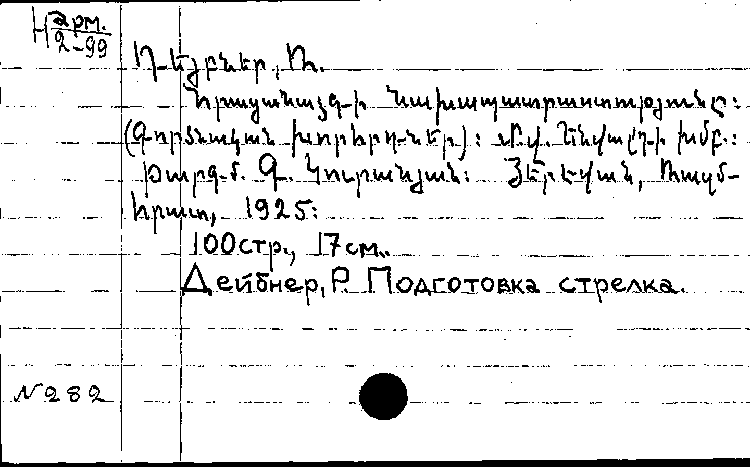 Н арм.
2-99
Դեյբներ, Ռ.
Հրաձանազգ-ի նախապատրաստությունը:
(Գործնական խորհրդ-ներ): Մ.Վ. Սնվալդ-ի խմբ.:
Թարգմ. Գ. Կուրանյան: Յերևան, Ռազմ-
հրատ, 1925:
100стр., 17см..
Дейбнер, Р. Подготовка стрелка.
N 282